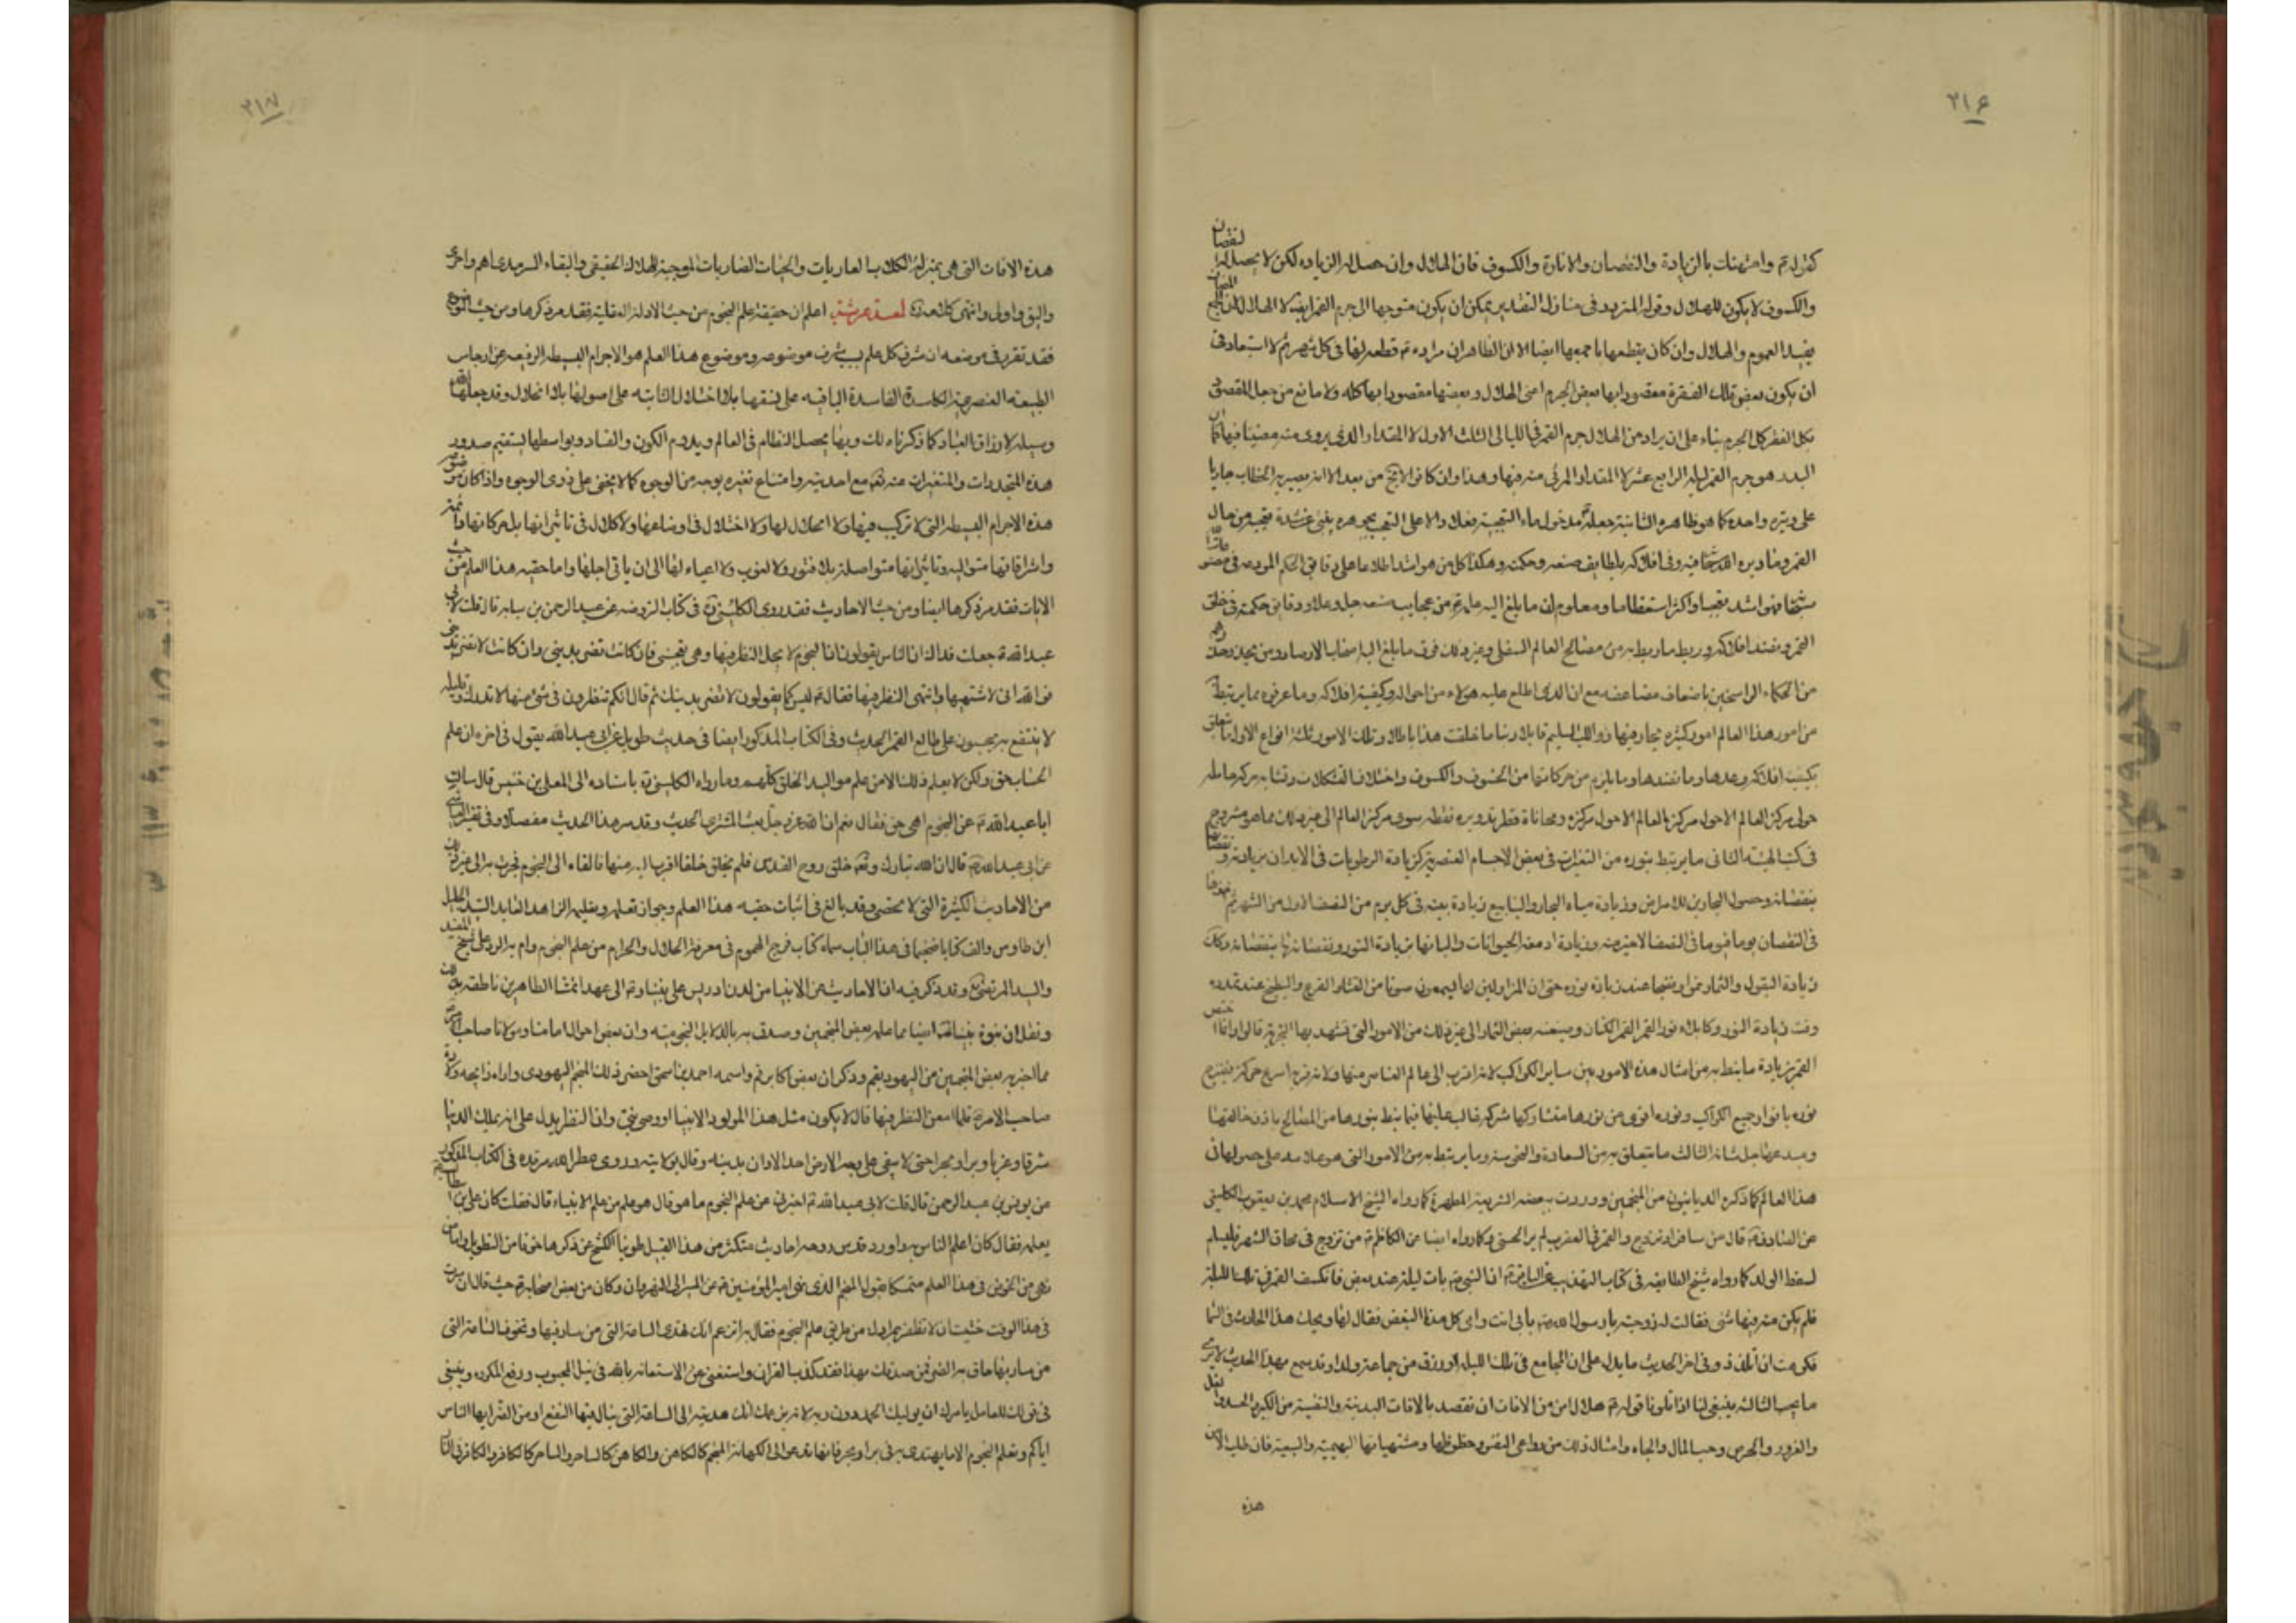 ٢١۶
كقوله تم وامتهنك بالزيادة والنقصان والانارة والكسوف فان الهلال وان حصل له الزيادة لكن لا يحصل له النقصان
والكسوف لا يكون للهلال وقوله المتردد في منازل التقدير يمكن ان يكون متوجها الى جرم القمر لا الهلال لكن
يفيد العموم والهلال وان كان يقطعها باجمعها ايضا الا ان الظاهر ان مراده تم قطعه لها في كل شهر ثم لا استبعاد في
ان يكون بعض تلك الفقرة مقصودا بها بعض الجرم اعنى الهلال وبعضها مقصودا بها كله ولا مانع من جعل المقصود
بكل الفقر كل الجرم بناء على ان يراد من الهلال جرم القمر في الليالى الثلث الاول لا المقدار الذى يرى منه مضيئا فيها كما ان
البدر هو جرم القمر ليلة الرابع عشر لا المقدار المرئى منه فيها وهذا وان كان لا يخ من بعد الا انه يصير به الخطاب جاريا
على وتيرة واحدة كما هو ظاهر الثانية جعله تم مدخول ما التعجبية فعلا دالا على التعجب بجوهره يغنى عن شدة تعجبه من حال
القمر وما دبره الله سبحانه فيه وفى افلاكه بلطايف صنعه وحكمته وهكذا كل من هو اشد اطلاعا على دقايق الحكم المودعة في مصنوعاته
سبحانه فهو اشد تعجبا واكثر استعظاما ومعلوم ان ما بلغ اليه علمه تم من عجايب صنعه جل وعلا ودقايق حكمته في خلق
القمر ونضد افلاكه وربط ما ربطه به من مصالح العالم السفلى وغير ذلك فوق ما بلغ اليه اصحاب الارصاد ومن يحذو حذوهم
من الحكماء الراسخين باضعاف مضاعفه مع ان الذى اطلع عليه هؤلاء من احواله وكيفية افلاكه وما عرفوه مما يرتبط به
من امور هذا العالم امور كثيرة يحار فيها ذو اللب السليم قايلا ربنا ما خلقت هذا باطلا وتلك الامور ثلثة انواع الاول ما يتعلق
بكيفية افلاكه وعدها وما نضدها وما يلزم من حركاتها من الخسوف والكسوف واختلاف التشكلات وتشابه حركة حامله
حول مركز العالم لا حول مركزه ومحاذاة قطر تدويره نقطة سوى مركز العالم الى غير ذلك مما هو مشروح
في كتب الهيئة الثانى ما يرتبط بنوره من التغيرات في بعض الاجسام العنصرية كزيادة الرطوبات في الابدان بزيادته ونقصانها
بنقصانه وحصول البحارين للامراض وزيادة مياه البحار والينابيع زيادة بينة في كل يوم من النصف الاول من الشهر ثم اخذها
في النقصان يوما فيوما في النصف الاخير منه وزيادة ادمغة الحيوانات والبانها بزيادة النور ونقصانها بنقصانه وكك
زيادة البقول والثمار نموا ونضجا عند زيادة نوره حتى ان المزاولين لها يسمعون صوتا من القثاء والقرع والبطيخ عند تمدده
وقت زيادة النور وكابلاء نور القمر الكتان وصبغه بعض الثمار الى غير ذلك من الامور التى تشهد بها التجربة قالوا وانما اختص
القمر بزيادة ما ينط به من امثال هذه الامور بين ساير الكواكب لانه اقرب الى عالم العناصر منها ولانه مع قربه اسرع حركة فيمتزج
نوره بانوار جميع الكواكب ونوره اقوى من نورها فتشاركها شركة غالبة عليها فيما ينط بنورها من المصالح باذن خالقها
ومبدعها جل شانه الثالث ما يتعلق به من السعادة والنحوسة وما يرتبط به من الامور التى هو علامة على حصولها في
هذا العالم كما ذكره الديانيون من المنجمين ووردت ببعضه الشريعة المطهرة كما رواه الشيخ الاسلام محمد بن يعقوب الكلينى
عن الصادق تم قال من سافر او تزوج والقمر في العقرب لم ير الحسنى وكما رواه ايضا عن الكاظم تم من تزوج في محاق الشهر فليسلم
لسقط الولد كما رواه شيخ الطايفه في كتاب التهذيب عن الباقر تم ان النبى بات ليلة عند بعض فانكسف القمر في تلك الليلة
فلم يكن منه فيها شئ فقالت له زوجته يا رسول الله بابى انت وامى كل هذا البغض فقال لها ويحك هذا الحادث في السماء
فكرهت ان اتلذذ وفى اخر الحديث ما يدل على ان المجامع في تلك الليلة ان رزق من جماعه ولدا وقد سمع بهذا الحديث لا يرى
ما يحب الثالثة ينبغى لنا اذا تلونا قوله تم هلال امن من الافات ان نقصد بالافات البدنية والنفسية من الكبر والحسد والغل
والغرور والحرص وحب المال والجاه وامثال ذلك من دواعى النفس وحظوظها ومشتهياتها البهيمية والسبعية فان طلب الامن من
هذه
٢١٧
هذه الافات التى هى بمنزلة الكلاب العاويات والحيات الضاريات الموجبة للهلاك الحقيقى والبقاء السرمدى اهم واحرى
واليق واولى وانتهى كلامه اعلم ان حقيقة علم النجوم من حيث الادلة العقلية فقد مر ذكرها ومن حيث
فقد تقرر في موضعه ان شرف كل علم بسبب شرف موضوعه وموضوع هذا العلم هو الاجرام البسيطة الرفيعة عن ارجاس
الطبيعة العنصرية الكاسدة الفاسدة الباقية على نسقها بلا اختلال الثابتة على اصولها بلا انحلال وقد جعلها الله
وسيلة لارزاق العباد كما ذكرناه لك وبها يحصل النظام في العالم ويدوم الكون والفساد وبواسطها يستقيم صدور
هذه المتجددات والمتغيرات عنه تعالى مع احديته وامتناع تغيره بوجه من الوجوه كما لا يخفى على ذوى الوجوه واذا كان موضوعه
هذه الاجرام البسيطة التى لا تركيب فيها ولا انحلال لها ولا اختلال في اوضاعها ولا كلال في تاثيراتها بل حركاتها دائمة
واشراقاتها متوالية وتاثيراتها متواصلة بلا فتور ولا لغوب ولا اعياء لها الى ان ياتى اجلها واما حقية هذا العلم من حيث
الايات فقد مر ذكرها ايضا ومن حيث الاحاديث فقد روى الكلينى في كتاب الروضة عن عبد الرحمن بن سيابه قال قلت لابى
عبد الله جعلت فداك ان الناس يقولون ان النجوم لا يحل النظر فيها وهى تعجبنى فان كانت تضر بدينى وان كانت لا تضر بدينى
فوالله انى لاشتهيها واشتهى النظر فيها فقال تم ليس كما يقولون لا تضر بدينك ثم قال انكم تنظرون في شئ منها لا تدرك وقليله
لا ينتفع به تحسبون على طالع القمر الحديث وفى الكتاب المذكور ايضا في حديث طويل عن ابى عبد الله يقول في اخره ان علم
الحساب حق ولكن لا يعلم ذلك الا من علم مواليد الخلق كلهم وما رواه الكلينى باسناده الى المعلى بن خنيس قال سالت
ابا عبد الله تم عن النجوم اهى حق فقال نعم ان الله عز وجل بعث المشترى الحديث وقد مر هذا الحديث مفصلا وفى تفسير العياشى
عن ابى عبد الله تم قال ان الله تبارك وتعالى خلق روح القدس فلم يخلق خلقا اقرب اليه منها فالقاه الى النجوم فجرت به الى غير ذلك
من الاحاديث الكثيرة التى لا تحصى وقد بالغ في اثبات حقية هذا العلم وجواز تعلمه وتعليمه الزاهد العابد السيد الجليل
ابن طاوس والف كتابا ضخيما في هذا الباب سماه كتاب فرج الهموم في معرفة الحلال والحرام من علم النجوم وام به الرد على الشيخ المفيد
والسيد المرتضى وقد ذكر فيه ان الاحاديث من الانبيا من لدن ادريس على نبينا وتم الى عهد ائمتنا الطاهرين ناطقة بذلك
ونقل ان نبوة نبينا ايضا مما علمه بعض المنجمين وصدق به بالدلايل النجومية وان بعض احوال امامنا ومولانا صاحب
مما اخبر به بعض المنجمين من اليهود بقم وذكر ان بعض اكابر قم واسمه احمد بن اسحق احضر ذلك المنجم اليهودى واراه زايجه ولادة
صاحب الامر تم فلما امعن النظر فيها قال لا يكون مثل هذا المولود الا نبيا او وصى نبى وان النظر يدل على انه يملك الدنيا
شرقا وغربا وبرا وبحرا حتى لا يبقى على وجه الارض احد الا دان بدينه وقال بولايته وروى عطر الله مرقده في الكتاب المذكور
عن يونس بن عبد الرحمن قال قلت لابى عبد الله تم اخبرنى عن علم النجوم ما هو قال هو علم من علم الانبياء قال فقلت كان على بن ابى طالب
يعلمه فقال كان اعلم الناس به واورد قدس روحه احاديث متكثرة من هذا القبيل طوينا الكشح عن ذكرها خوفا من التطويل واما من
نهى من الخوض في هذا العلم متمسكا بقول المنجم الذى نهى امير المؤمنين تم عن المسير الى النهروان وكان من بعض اصحابه حيث قال ان سرت
في هذا الوقت خشيت ان لا تظفر بمرادك من طريق علم النجوم فقال تم اتزعم انك تهدى الى الساعة التى من سار فيها وتخوف الساعة التى
من سار بها حاق به الضر فمن صدقك بهذا فقد كذب القران واستغنى عن الاستعانة بالله في نيل المحبوب ودفع المكروه وينبغى
في قولك للعامل بامرك ان يوليك الحمد دون ربه لانه بزعمك انك هديته الى الساعة التى ينال فيها النفع وامن الضر ايها الناس
اياكم وتعلم النجوم الا ما يهتدى به في بر او بحر فانها تدعو الى الكهانة المنجم كالكاهن والكاهن كالساحر والساحر كالكافر والكافر في النار